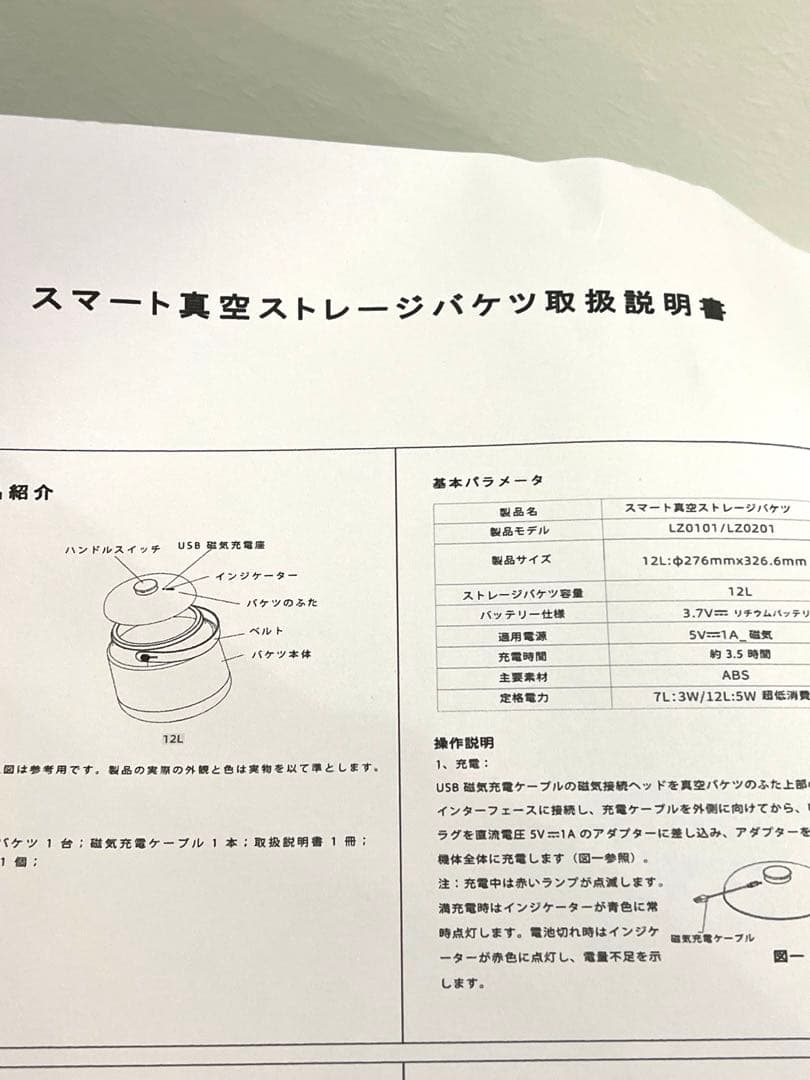 スマート真空ストレージバケツ取扱説明書
紹介
ハンドルスイッチ
USB 磁気充電座
インジケーター
バケツのふた
ベルト
バケツ本体
12L
図は参考用です。製品の実際の外観と色は実物を以て準とします。
バケツ 1 台；磁気充電ケーブル 1 本；取扱説明書 1 冊；
1 個；
基本パラメータ
製品名 スマート真空ストレージバケツ
製品モデル LZ0101/LZ0201
製品サイズ 12L:φ276mmx326.6mm
ストレージバケツ容量 12L
バッテリー仕様 3.7V⎓ リチウムバッテリ
適用電源 5V⎓1A_磁気
充電時間 約 3.5 時間
主要素材 ABS
定格電力 7L:3W/12L:5W 超低消費
操作説明
1、充電：
USB 磁気充電ケーブルの磁気接続ヘッドを真空バケツのふた上部
インターフェースに接続し、充電ケーブルを外側に向けてから、
ラグを直流電圧 5V⎓1A のアダプターに差し込み、アダプターを
機体全体に充電します（図一参照）。
注：充電中は赤いランプが点滅します。
満充電時はインジケーターが青色に常
時点灯します。電池切れ時はインジケ
ーターが赤色に点灯し、電量不足を示
します。
磁気充電ケーブル
図一